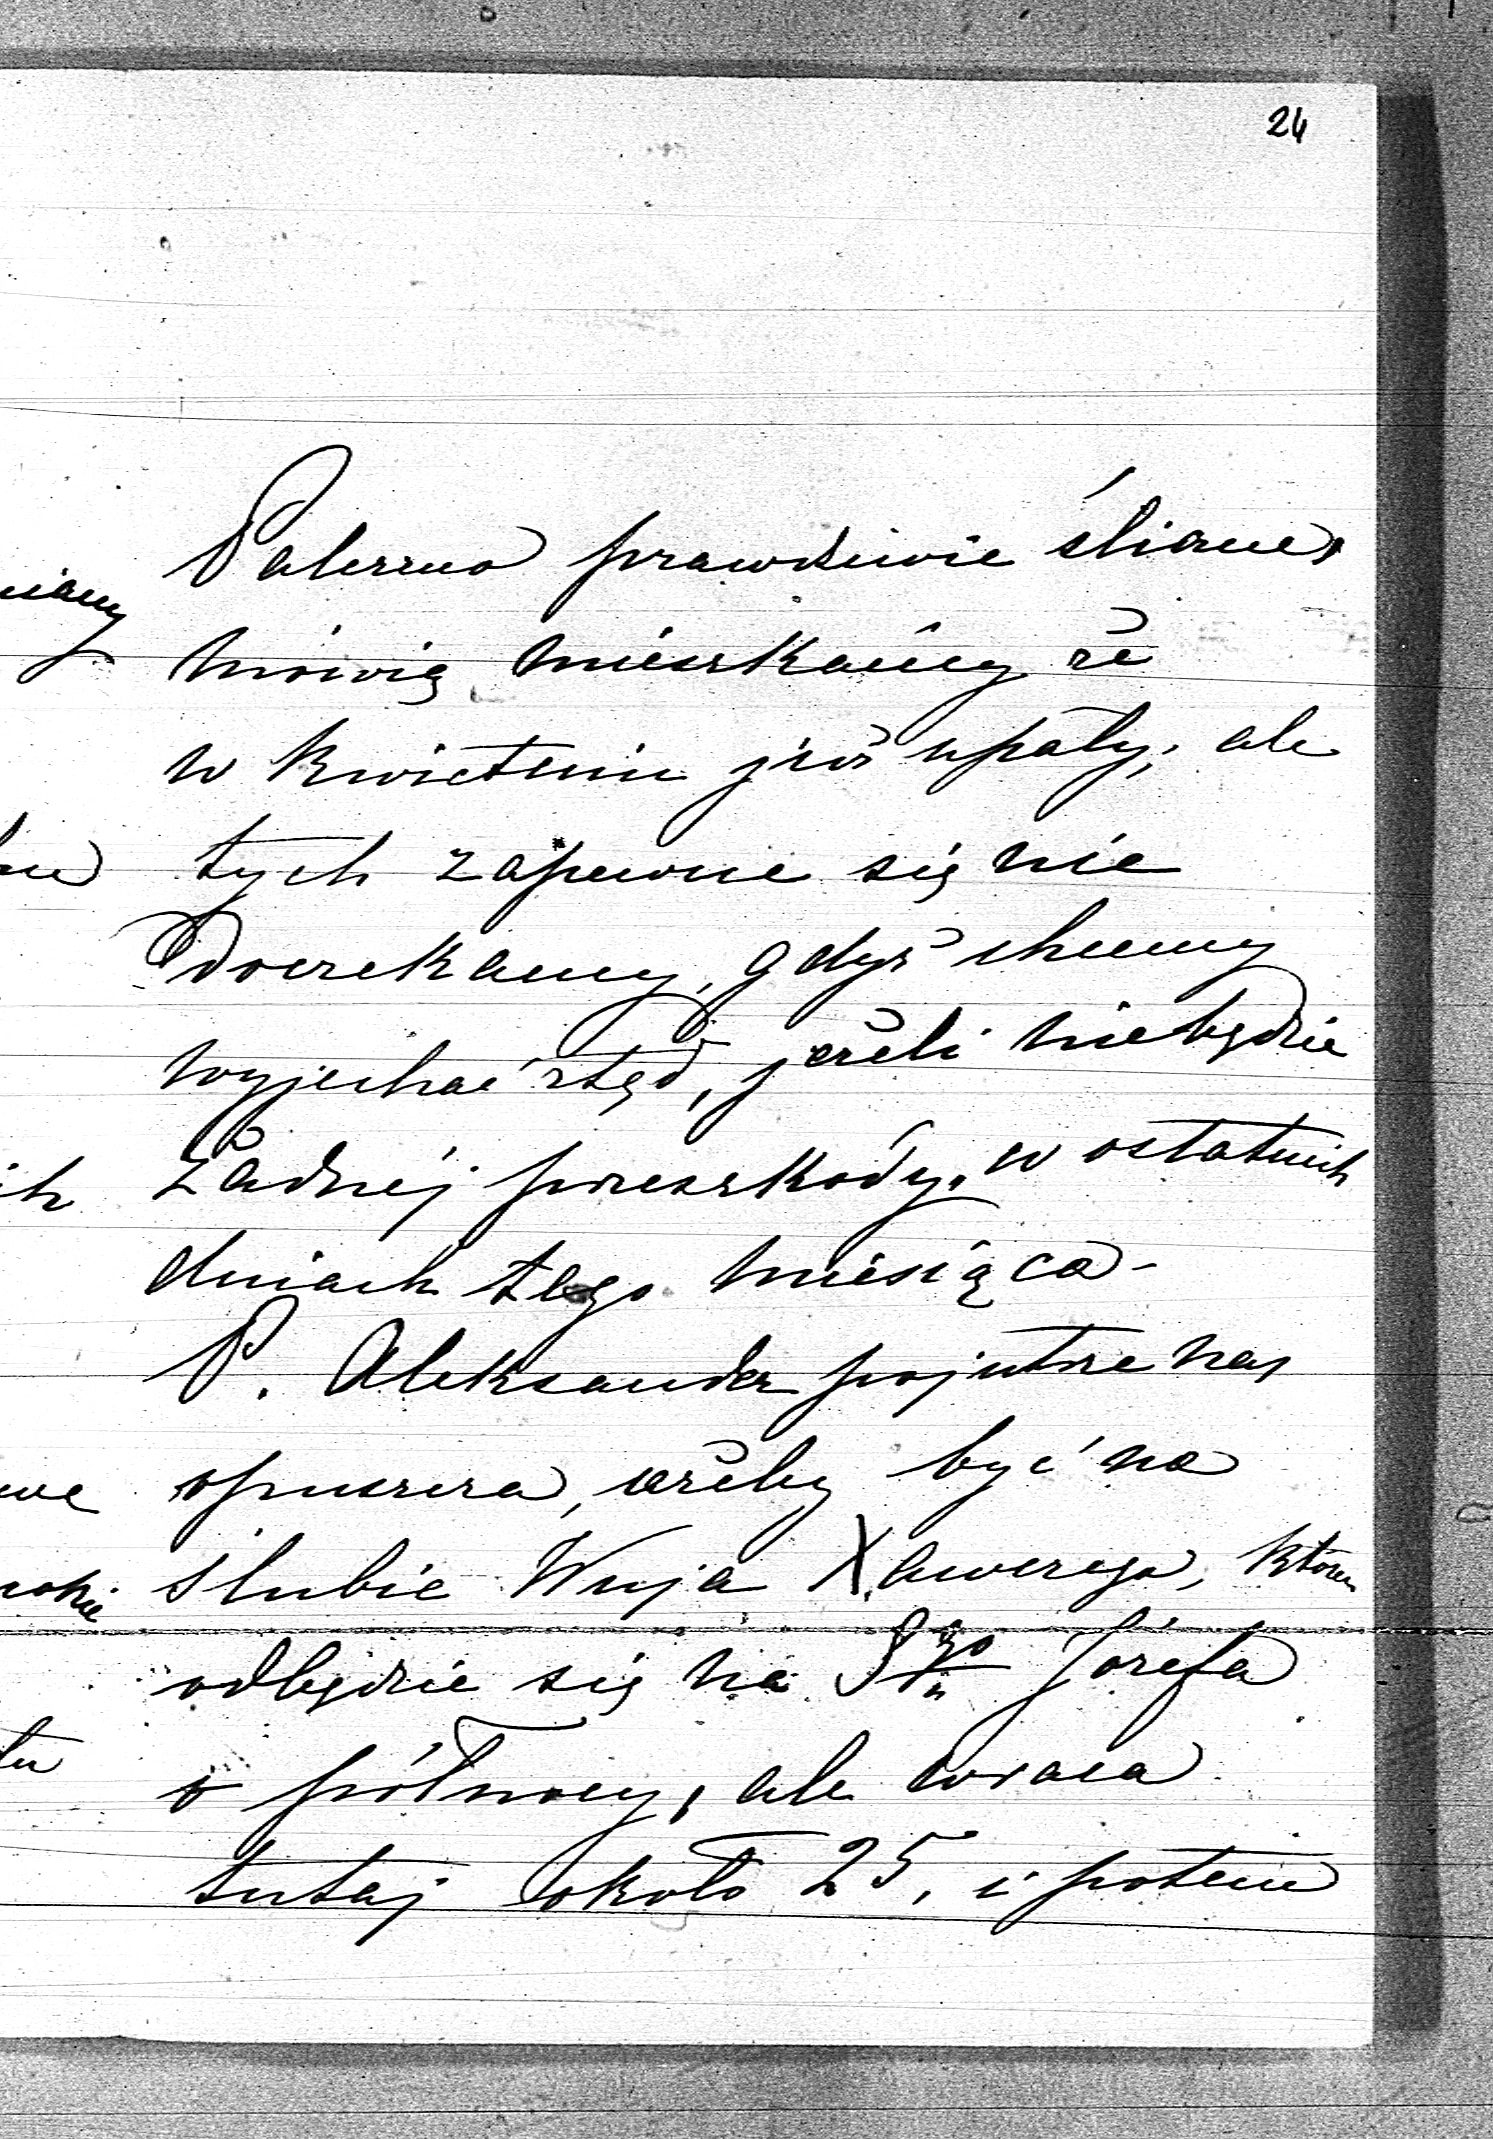 24
Palermo prawdziwie śliczne,
mówią mieszkańcy że
w kwietniu już upały, ale
tych zapewne się nie
doczekamy, gdyż chcemy
wyjechać ztąd, jeżeli niebędzie
żadnéj przeszkody, w ostatnich
dniach tego miesiąca -
P. Aleksander pojutrze nas
opuszcza, żeby być na
ślubie Wuja Xawerego, który
odbędzie się na Sgo Józefa
o północy, ale wraca
tutaj około 25, i potem